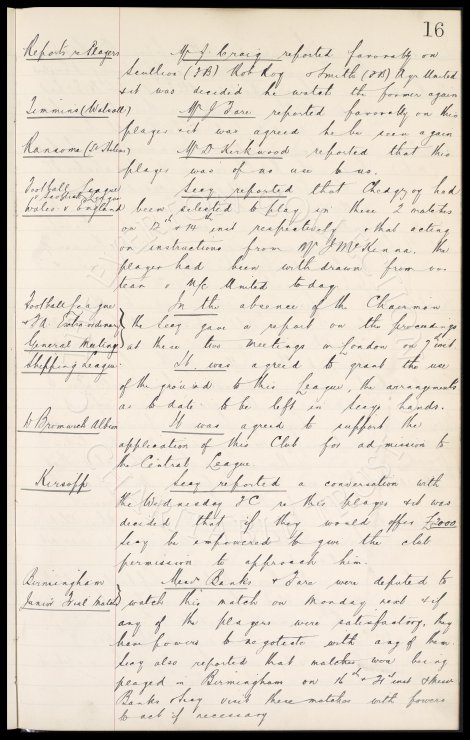 16
Reports re Players Mr J. Craig reported favorably on
Scullion (J B) Rob Roy & Smith (J B) Ayr United
& it was decided he watch the former again
Timmins (Walsall) Mr J Fare reported favorably on this
player & it was agreed he be seen again
Ransome (St Helens) Mr D Kirkwood reported that this
player was of no use to us.
Football League Secy reported that Chedgzoy had
v Scottish League
Wales v England been selected to play in these 2 matches
on 12th & 14th inst respectively & that acting
on instructions from Mr J McKenna the
player had been withdrawn from our
team v M/c United to day.
Football League In the absence of the Chairman
& F.A. Extraordinary the Secy gave a report on the proceedings
General Meeting at these two meetings in London on 7th inst
Shipping League It was agreed to grant the use
of the ground to this League, the arrangements
as to date to be left in Secys hands.
W Bromwich Albion It was agreed to support the
application of this Club for admission to
the Central League.
Kirsopp Secy reported a conversation with
the Wednesday F C re this player & it was
decided that if they would offer £2000
Secy be empowered to give the club
permission to approach him.
Birmingham Messrs Banks & Fare were deputed to
Junior Trial Match watch this match on Monday next & if
any of the players were satisfactory, they
have powers to negotiate with any of them.
Secy also reported that matches were being
played in Birmingham on 16th & 21st inst & Messrs
Banks & Secy visit these matches with powers
to act if necessary